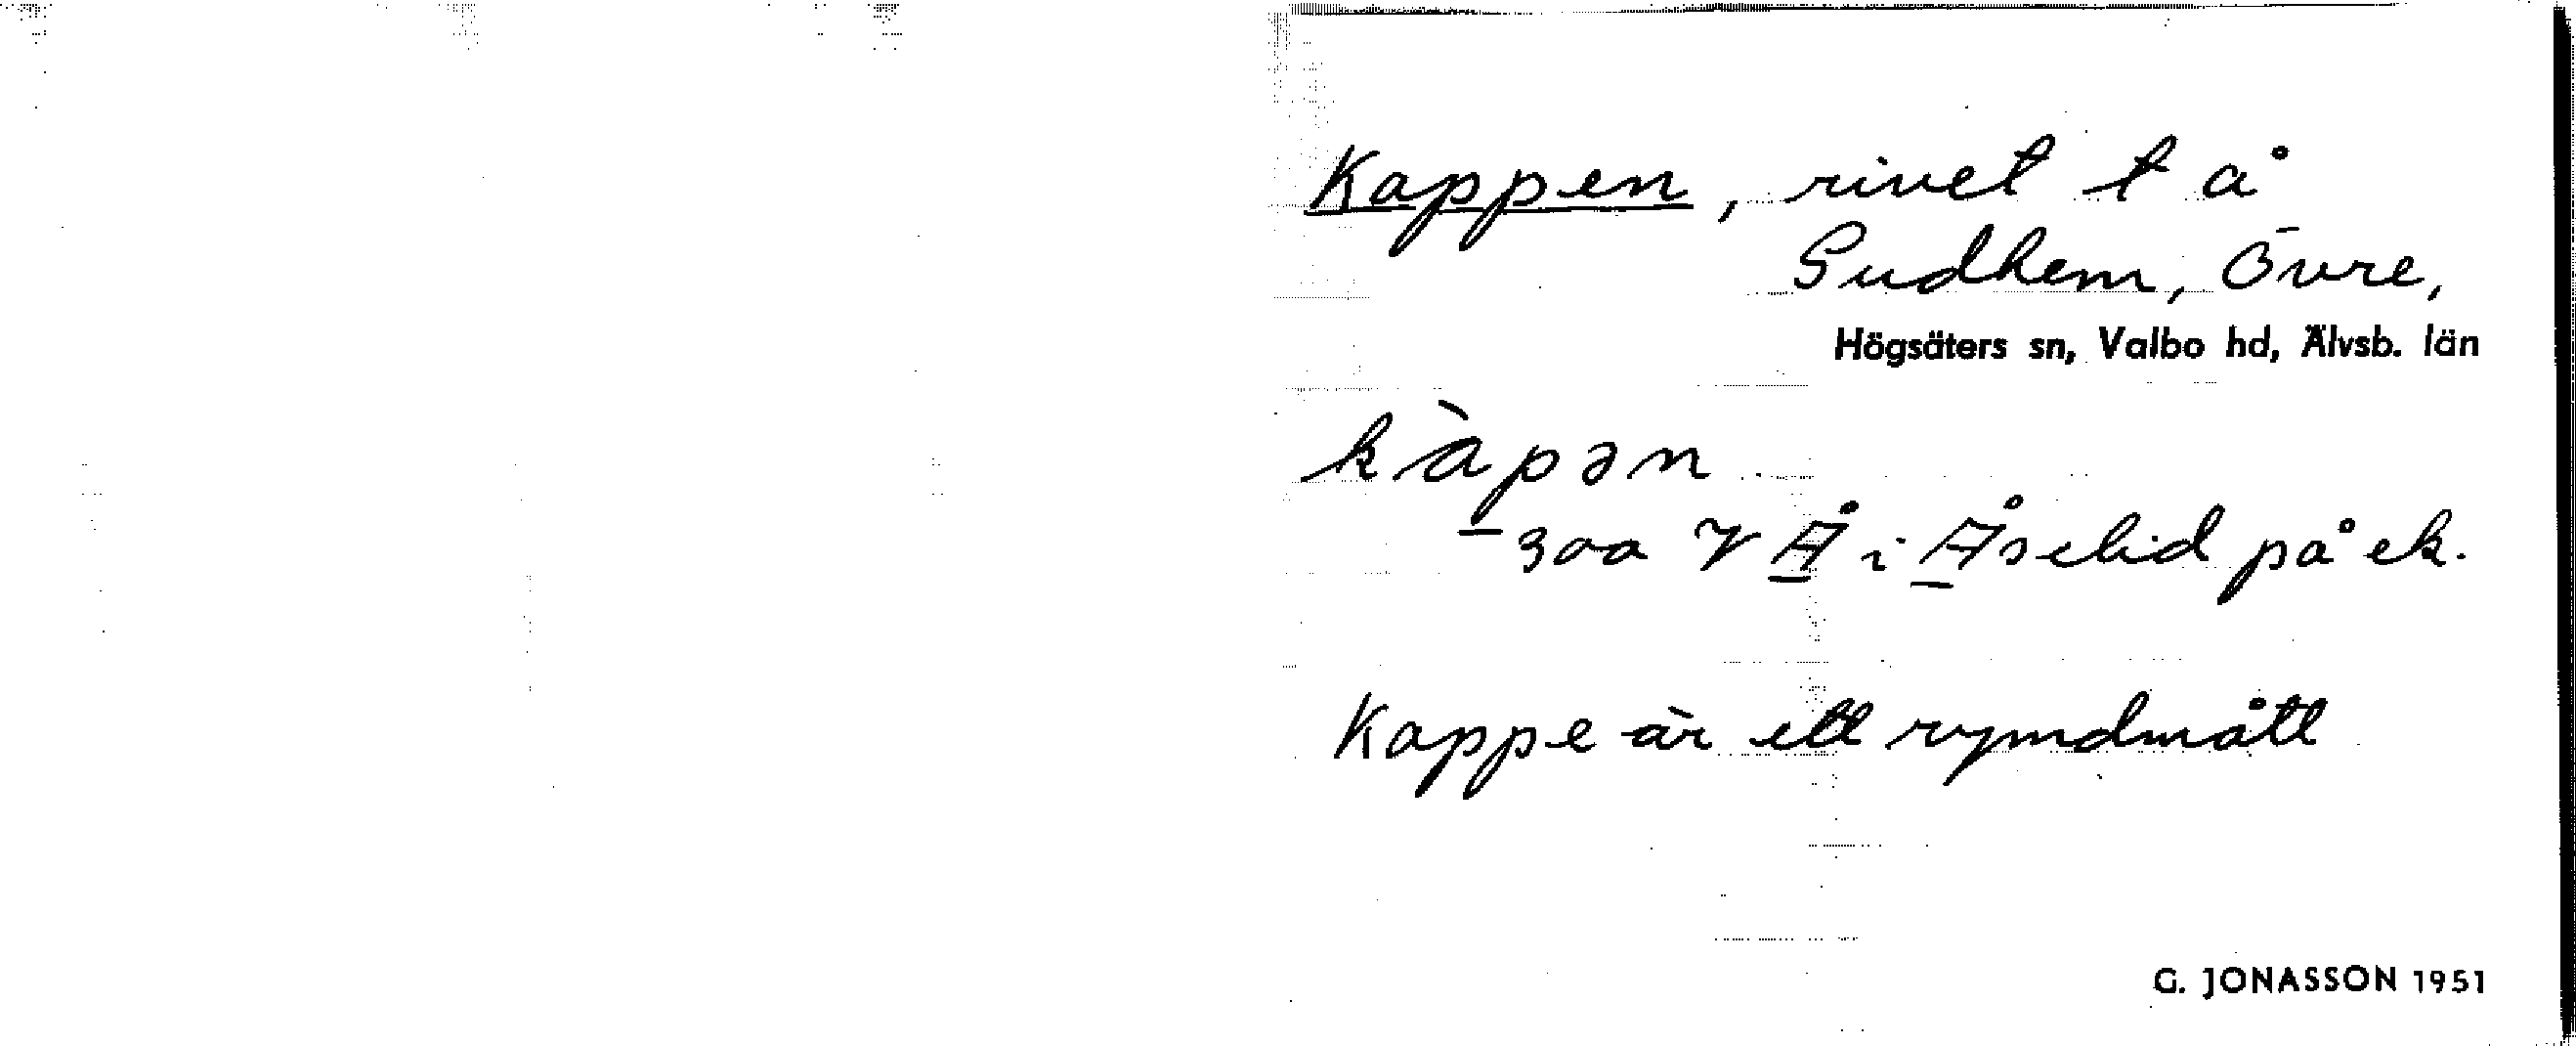 Kappen, rivet t å
Sudhem, Övre,
Högsäters sn, Valbo hd, Älvsb. län
kàpən
300 V Å i Åselid på ek.
Kappe är ett rymdmått
G. JONASSON 1951